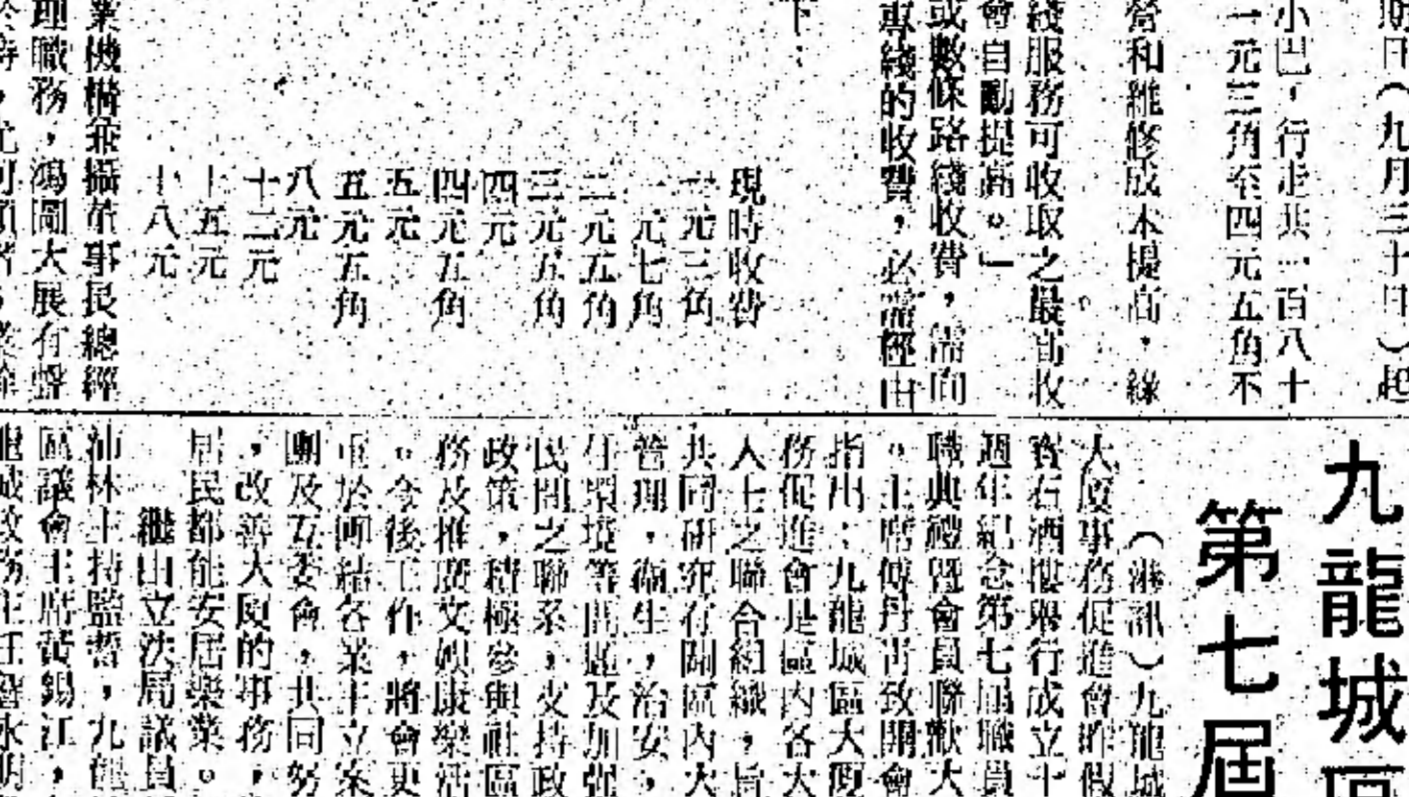 期日（九月三十日）起
小巴，行走共一百八十
一元三角至四元五角不
營和維修成本提高，線
綫服務可收取之最高收
會自動提高。」
或數條路綫收費，需向
專綫的收費，必需經由
下：
現時收費
一元三角
一元七角
二元五角
三元五角
四元
四元五角
五元
五元五角
八元
十二元
十五元
十八元
業機構兼攝董事長總經
理職務，鴻圖大展有聲
九龍城區
第七屆
（港訊）九龍城
大廈事務促進會昨假
寶石酒樓舉行成立十
週年紀念第七屆職員
職典禮暨會員聯歡大
。主席傅丹青致開會
指出：九龍城區大廈
務促進會是區內各大
人士之聯合組織，旨
共同研究有關區內大
管理，衞生，治安，
住環境等問題及加強
民間之聯系，支持政
政策，積極參與社區
務及推廣文娛康樂活
。今後工作，將會更
重於團結各業主立案
團及互委會，共同努
，改善大廈的事務，
居民都能安居樂業。
繼由立法局議員
沛林主持監誓，九龍
區議會主席黃錫江，
龍城政務主任